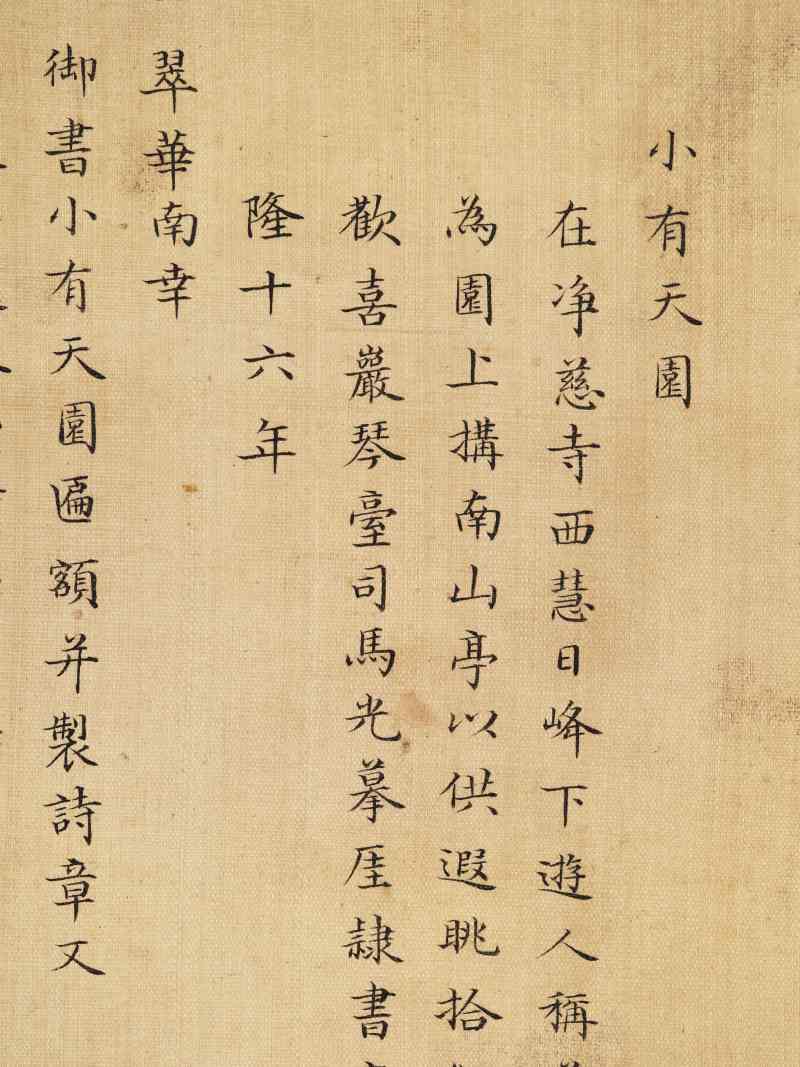 小有天園
在净慈寺西慧日峰下遊人稱
為園上構南山亭以供遐眺拾
歡喜巖琴臺司馬光摹厓隷書
隆十六年
翠華南幸
御書小有天園匾額并製詩章又